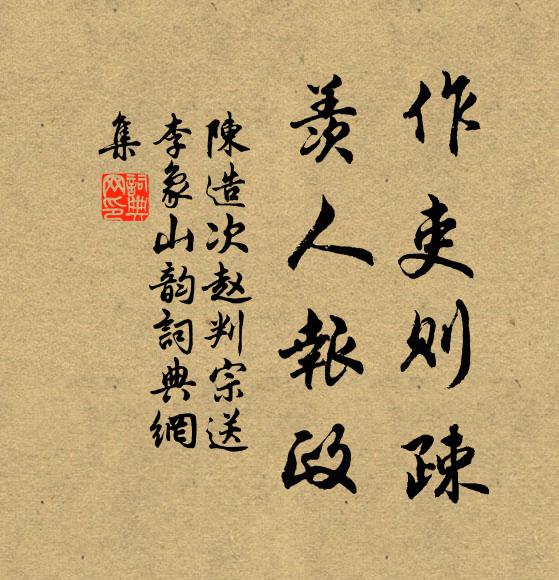 作吏則疎
羨人報政
陳造次赵判宗送
李象山韵詞典網
集
詞典網印